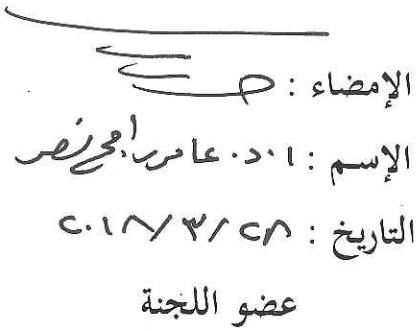 الإمضاء :
الإسم : ا.د. عامر راجح نصر
التاريخ : ٢٠١٨/٣/٢٨
عضو اللجنة